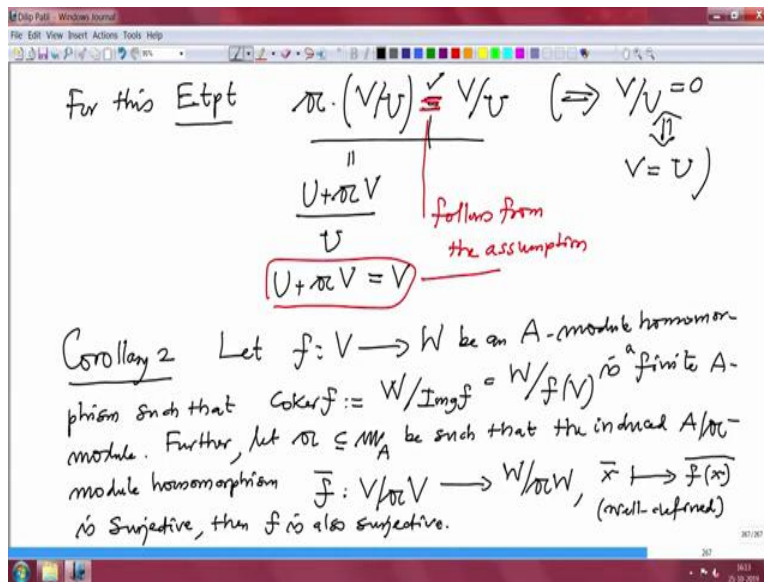 Dilip Patil - Windows Journal
File Edit View Insert Actions Tools Help
For this Etpt 𝔞·(V/U) = V/U (⇒ V/U = 0
⇕
V = U)
=
U+𝔞V
U
follows from
the assumption
U+𝔞V = V
Corollary 2 Let f: V ⟶ W be an A-module homomor-
phism such that Coker f := W/Img f = W/f(V) is a finite A-
module. Further, let 𝔞 ⊆ 𝔪_A be such that the induced A/𝔞-
module homomorphism f̄ : V/𝔞V ⟶ W/𝔞W, x̄ ⟼ \overline{f(x)}
(well-defined)
is Surjective, then f is also surjective.
267/267
267
16:13
25-10-2019